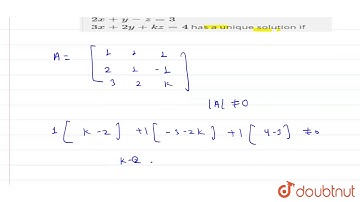 2x + y − z = 3
3x + 2y + kz = 4 has a unique solution if
A = [ 1 1 1
2 1 -1
3 2 k ]
|A| ≠ 0
1 [ k - 2 ] + 1 [ - 3 - 2k ] + 1 [ 4 - 3 ] ≠ 0
k-2
doubtnut